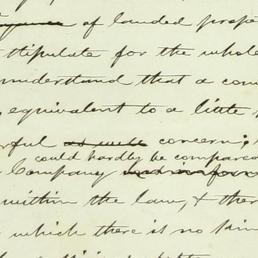 of landed prope
stipulate for the whole
understand that a com
equivalent to a little
erful as well concern;
could hardly be compared
Company
within the law, & ther
which there is no